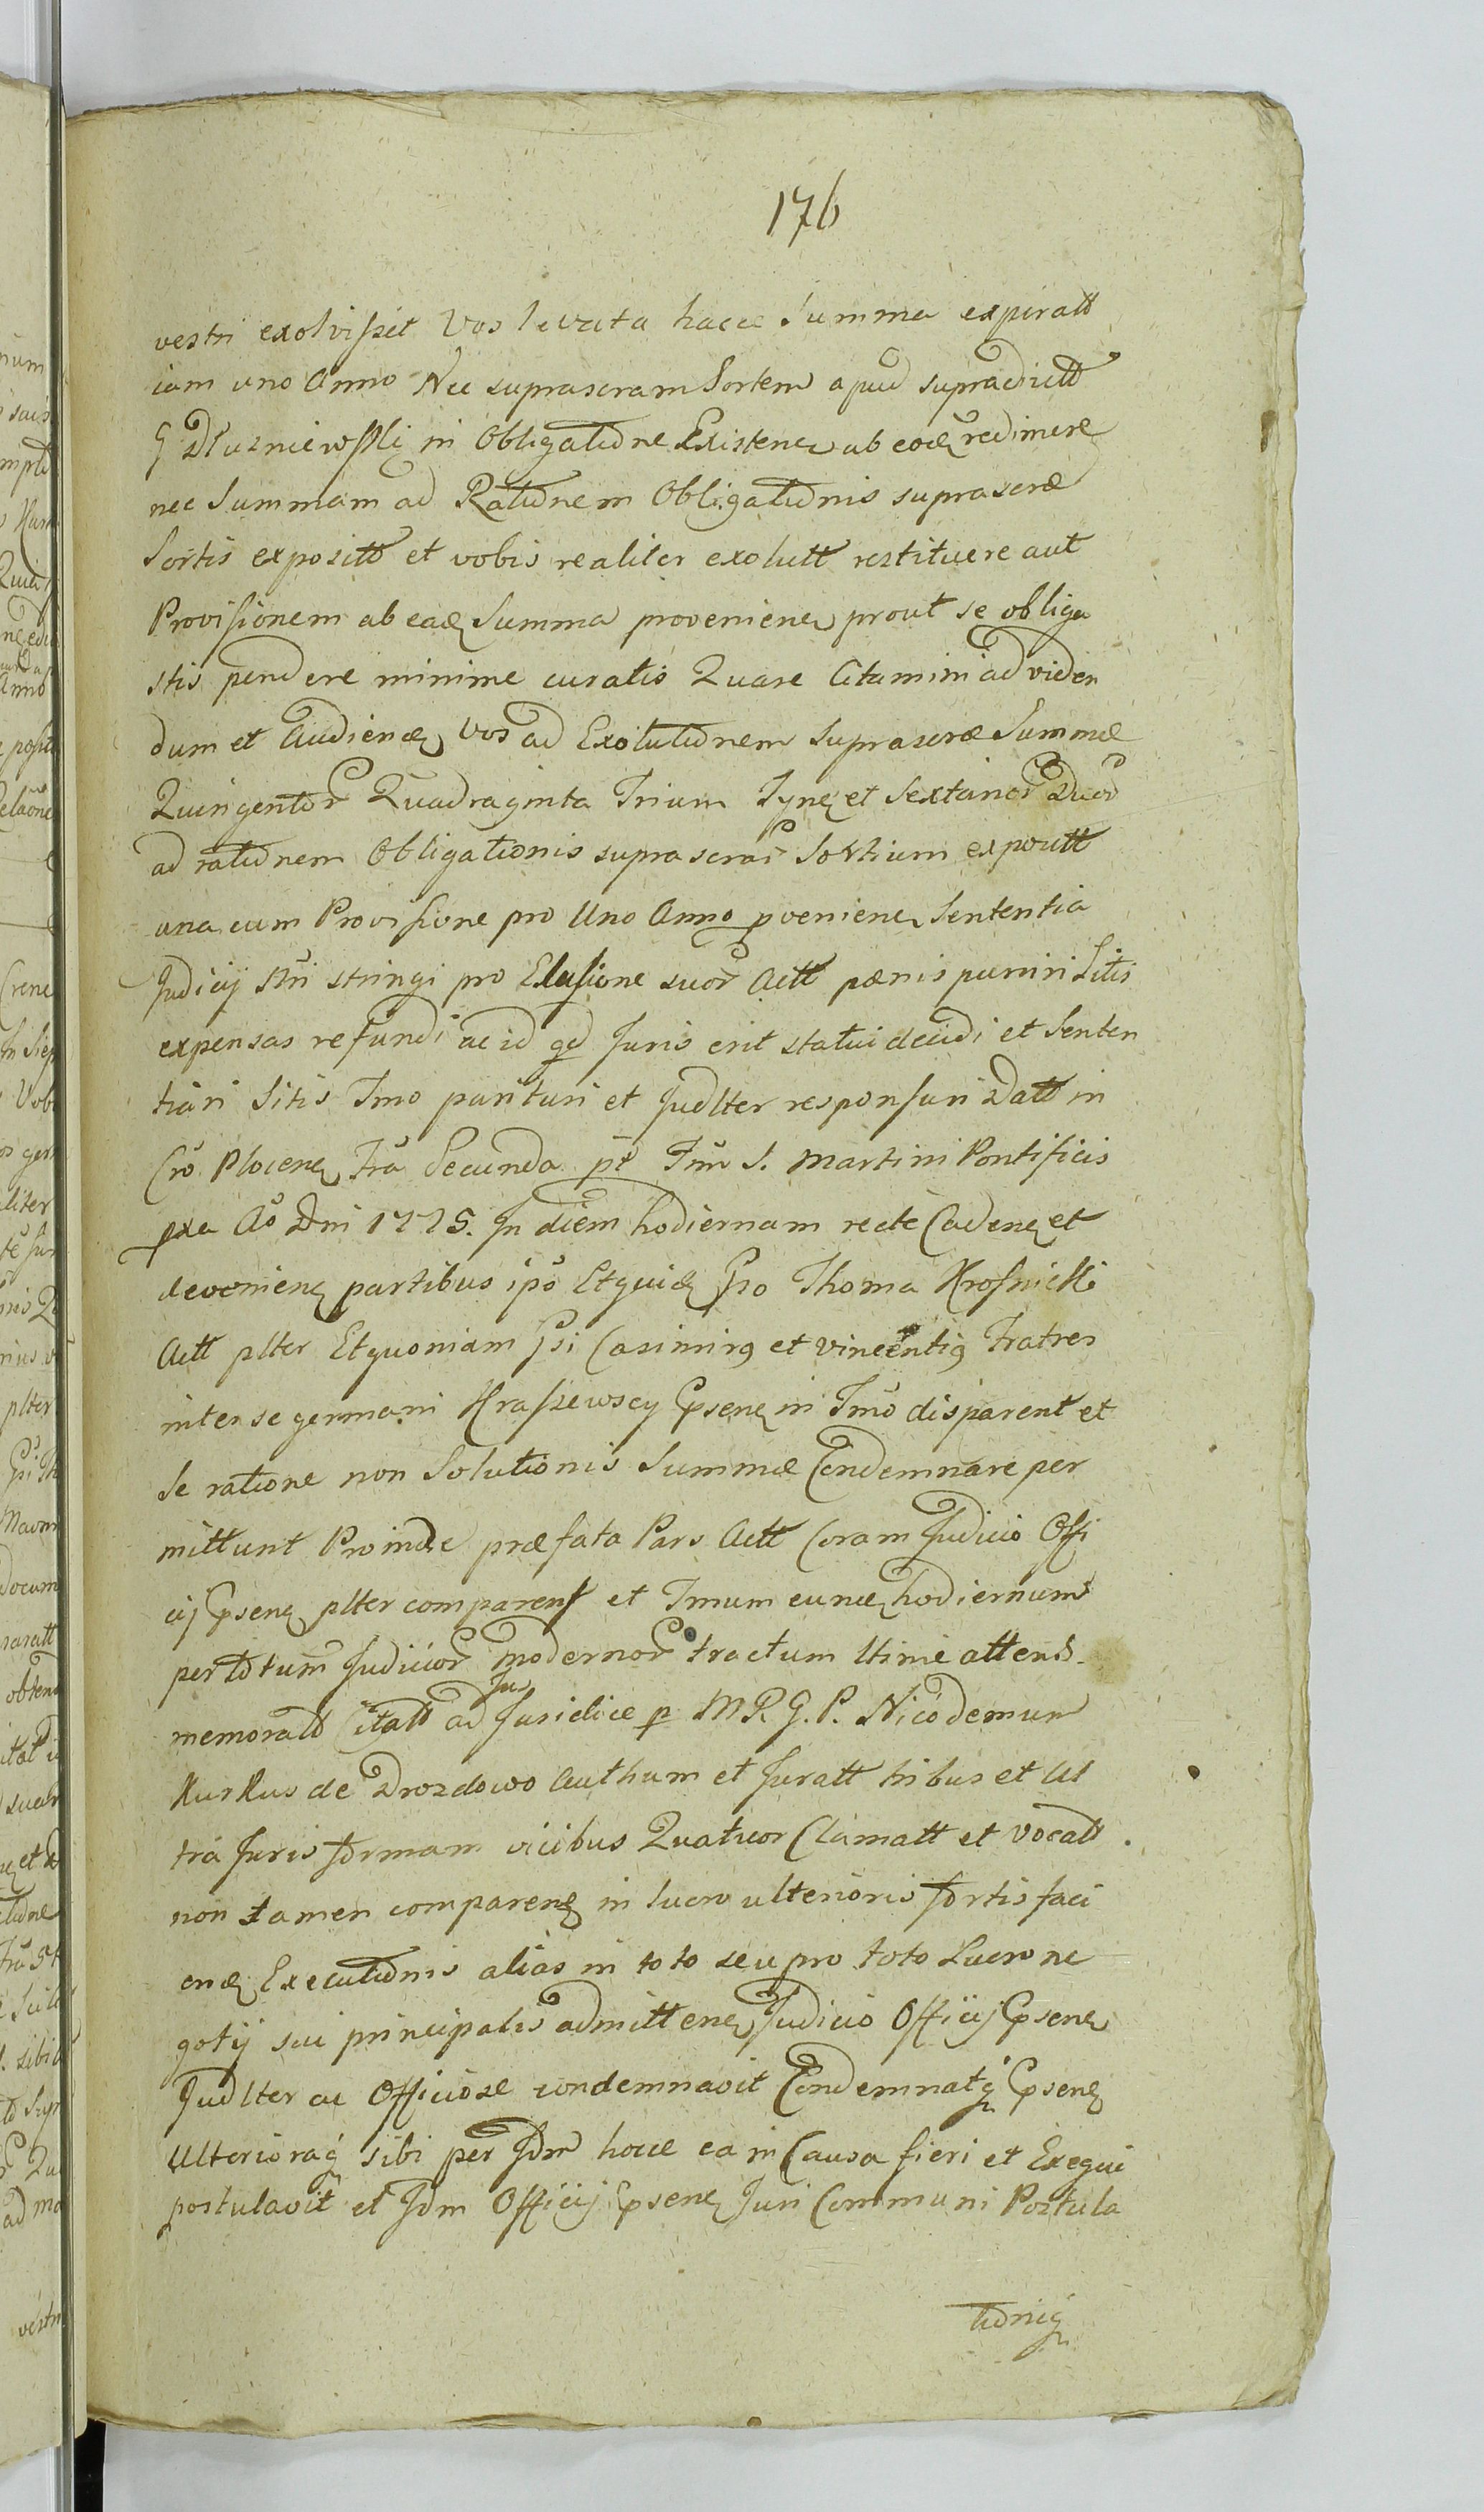 176
vestri exolvisset Vos levata hacce Summa expiratt
iam uno Anno Nec suprascram Sortem apud supradictt
G Dłuzniewski in Obligatione Existenꝫ ab eoꝫ redimere
nec Summam ad Rationem Obligationis suprascræ
Sortis exposittt et vobis realiter exolutt restituere aut
Provisionem ab eadꝫ Summa provenienꝫ prout se obliga
stis pendere minime curatis Quare Citamini ad viden
dum et Audiendꝫ Vos ad Exolutionem Suprascræ Summæ
Quingentor Quadraginta Trium Tynꝫ et Sextanor Duor
ad rationem Obligationis suprascrar Sortium exposittt
una cum Provisione pro Uno Anno pvenienꝫ Sententia
Judicij Nri stringi pro Elusione suor Actt pænis puniri Litis
expensas refundi ac id qd Juris erit statui decidi et Senten
tiari Sitis Tmo parituri et Judlter responsuri Datt in
Cro Plocenꝫ Fra Secunda pt Fm S. Martini Pontificis
pxa Ao Dni 1775. In diem hodiernam recte Cadenꝫ et
devenienꝫ partibus ipo Etquidꝫ Gso Thoma Krosnicki
Actt plter Etquoniam Gsi Casimirꝰ et Vincentiꝰ Fratres
inter se germani Kraszewscy Cpsenꝫ in Tmo disparent et
Se ratione non Solutionis Summæ Condemnare per
mittunt Proinde præfata Pars Actt Coram Judicio Offi
cij Cpsenꝫ plter comparens et Tmum eundꝫ hodiernum
per totum Judicior modernor tractum ltime attend.
memoratt Citatt ad Jus Juridice p M R. G. P. Nicodemum
Kurkus de Drozdowo Authum et Juratt tribus et Ul
tra Juris formam vicibus Quatuor Clamatt et Vocatt.
non tamen comparenꝫ in lucro ulterioris fortis faci
endꝫ Executionis alias in toto seu pro toto Lucro ne
gotij sui principalis admittenꝫ Judicio Officij Cpsenꝫ
Judlter ac Officiose condemnavit Condemnatqꝫ Cpsenꝫ
Ulterioraqꝫ sibi per Jdm hocce ea in Causa fieri et Exequi
postulavit et Jdm Officij Cpsenꝫ Juri Communi Postula
tioniqꝫ